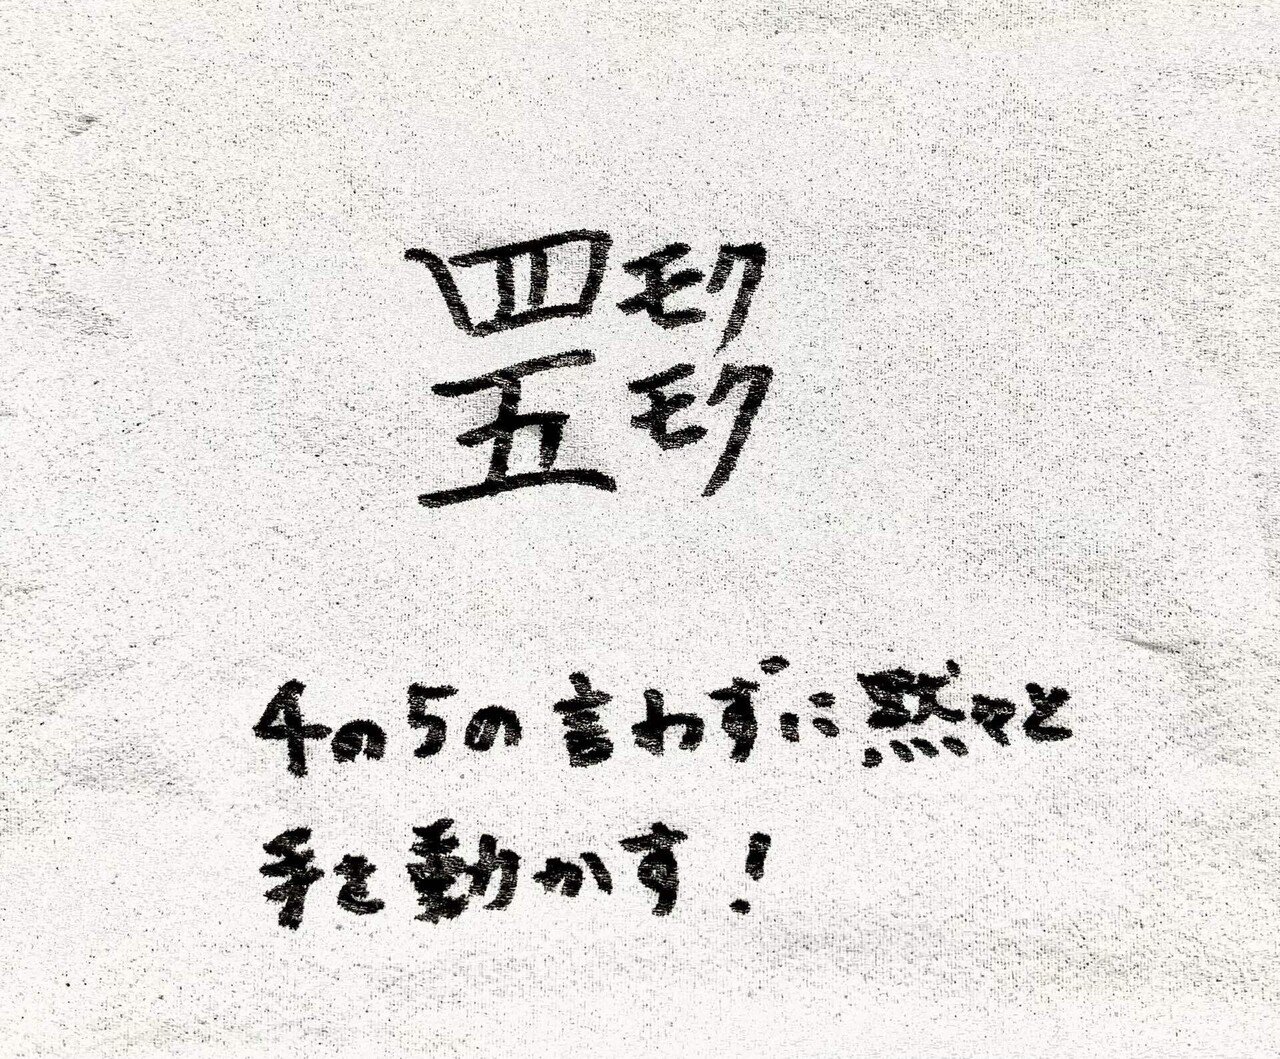 四モク
五モク
4の5の言わずに黙々と
手を動かす!